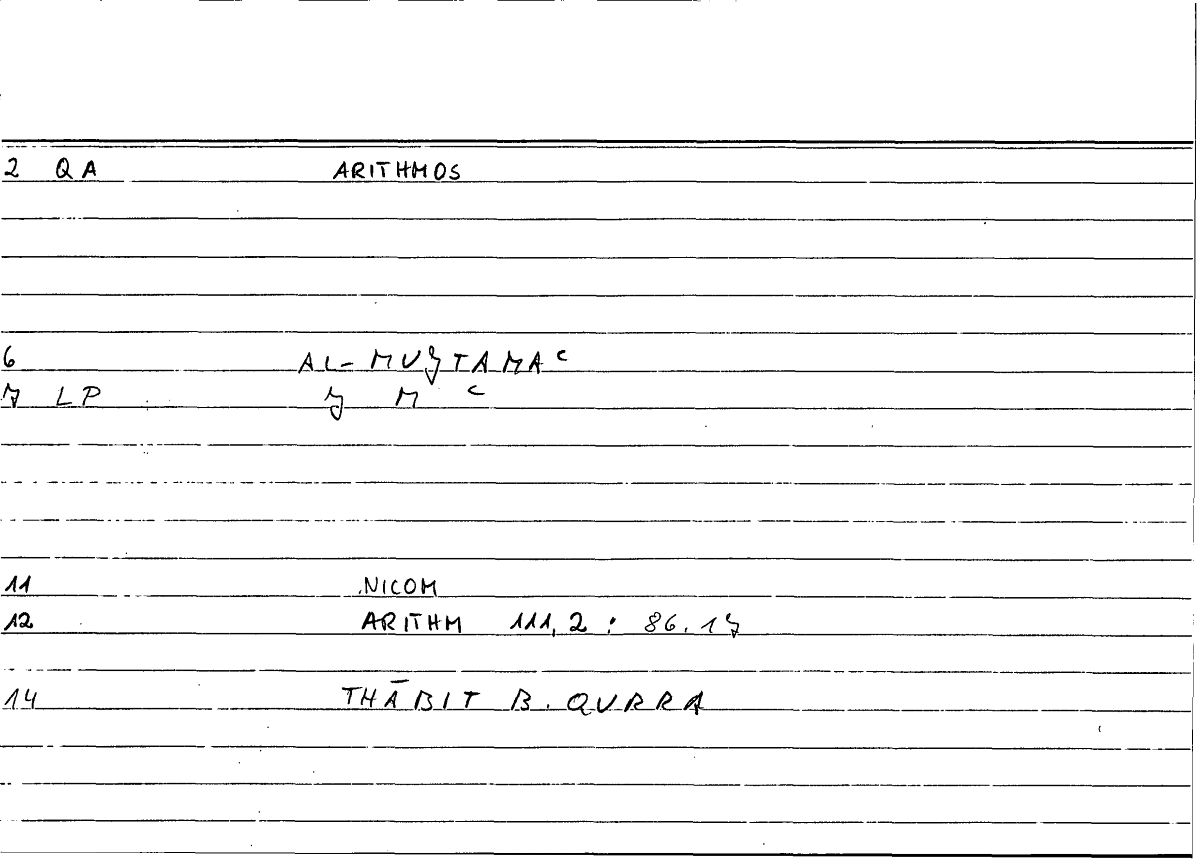 2 QA ARITHMOS
6 AL-MUJTAMAʿ
7 LP J M ʿ
11 NICOM
12 ARITHM 111,2 : 86.17
14 THĀBIT B. QURRA